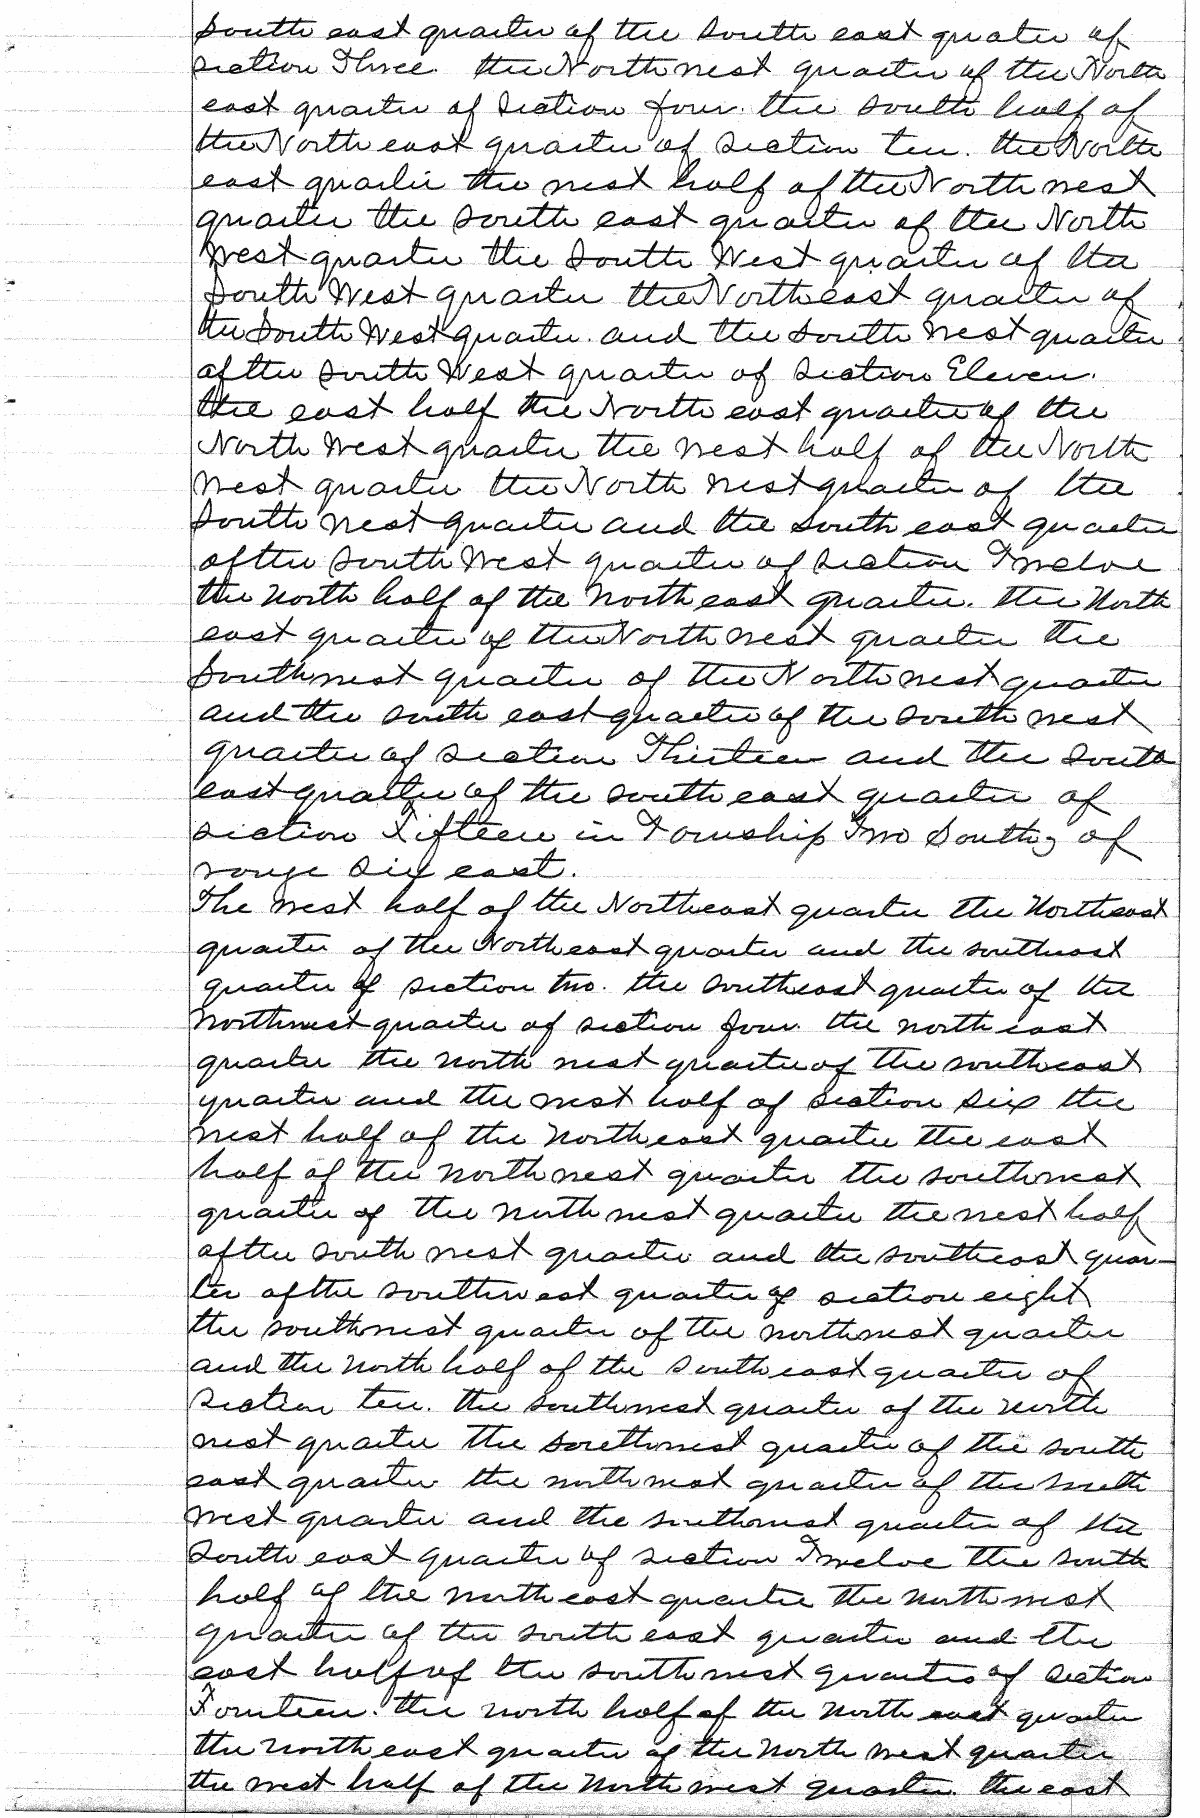 South east quarter of the South east quater of
section Three. the North west quarter of the North
east quarter of section four. the south half of
the North east quarter of section ten. the North
east quarter the west half of the North west
quarter the south east quarter of the North
West quarter the South West quarter of the
South West quarter the North east quarter of
the South West quarter. and the south west quarter
of the South West quarter of section Eleven.
the east half the North east quarter of the
North West quarter the west half of the North
West quarter the North west quarter of the
South west quarter and the south east quarter
of the South West quarter of section Twelve
the North half of the North east quarter. the North
east quarter of the North west quarter the
South west quarter of the North west quarter
and the south east quarter of the south west
quarter of section Thirteen and the South
east quarter of the south east quarter of
section Fifteen in Township Two South, of
range six east.
The West half of the Northeast quarter the Northeast
quarter of the Northeast quarter and the southeast
quarter of section two. the southeast quarter of the
Northwest quarter of section four. the north east
quarter the north west quarter of the southeast
quarter and the west half of section six the
west half of the Northeast quarter the east
half of the north west quarter the southwest
quarter of the north west quarter the west half
of the south west quarter and the southeast quar-
ter of the southwest quarter of section eight
the southwest quarter of the northwest quarter
and the north half of the southeast quarter of
section ten. the southwest quarter of the north
west quarter the southwest quarter of the south
east quarter the northwest quarter of the south
west quarter and the southwest quarter of the
South east quarter of section Twelve the south
half of the north east quarter the north west
quarter of the south east quarter and the
east half of the south west quarter of section
Fourteen. the north half of the North east quarter
the north east quarter of the North west quarter
the west half of the North west quarter. the east